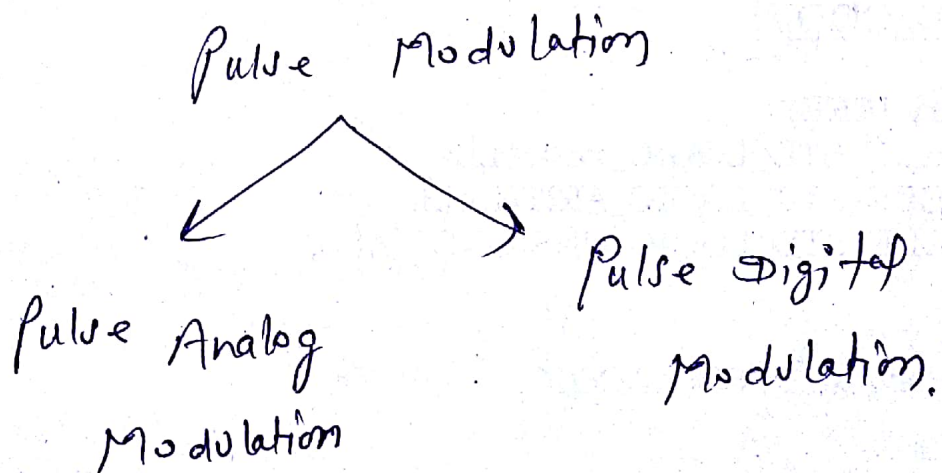 Pulse Modulation
Pulse Analog
Modulation
Pulse Digital
Modulation.